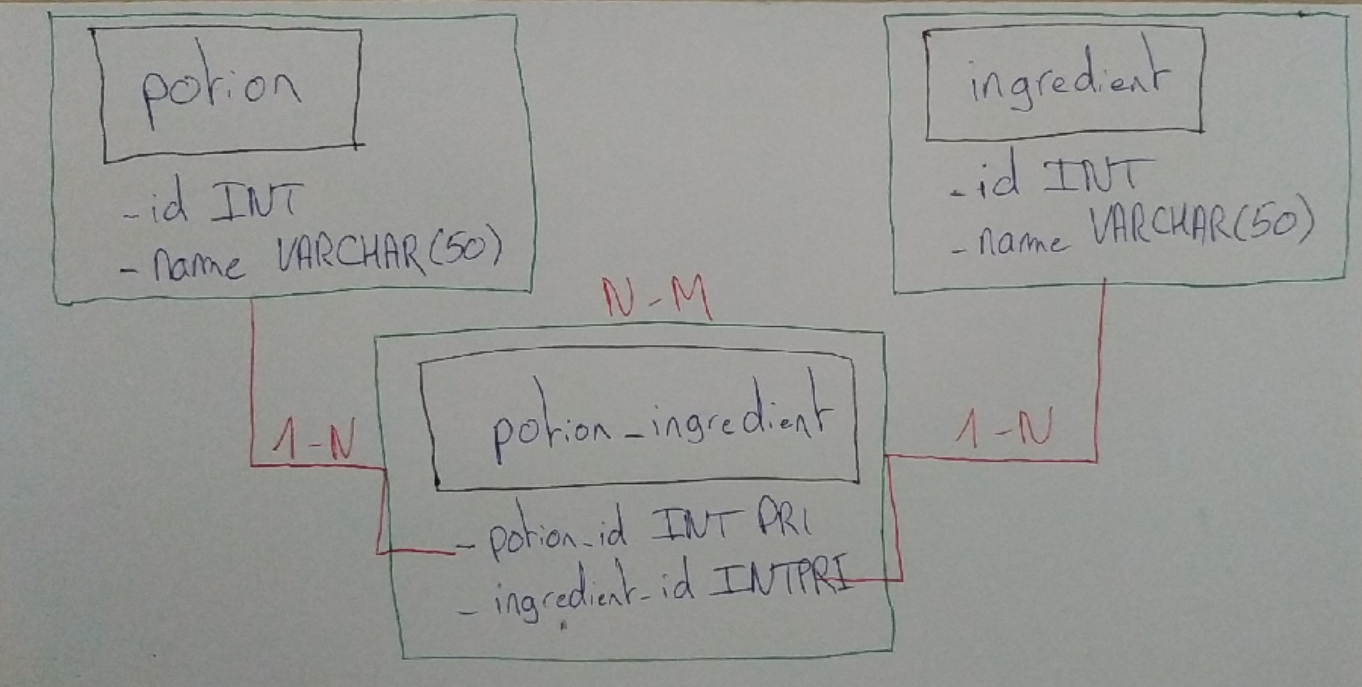 potion
- id INT
- name VARCHAR(50)
ingredient
- id INT
- name VARCHAR(50)
N-M
1-N
1-N
potion_ingredient
- potion_id INT PRI
- ingredient_id INT PRI